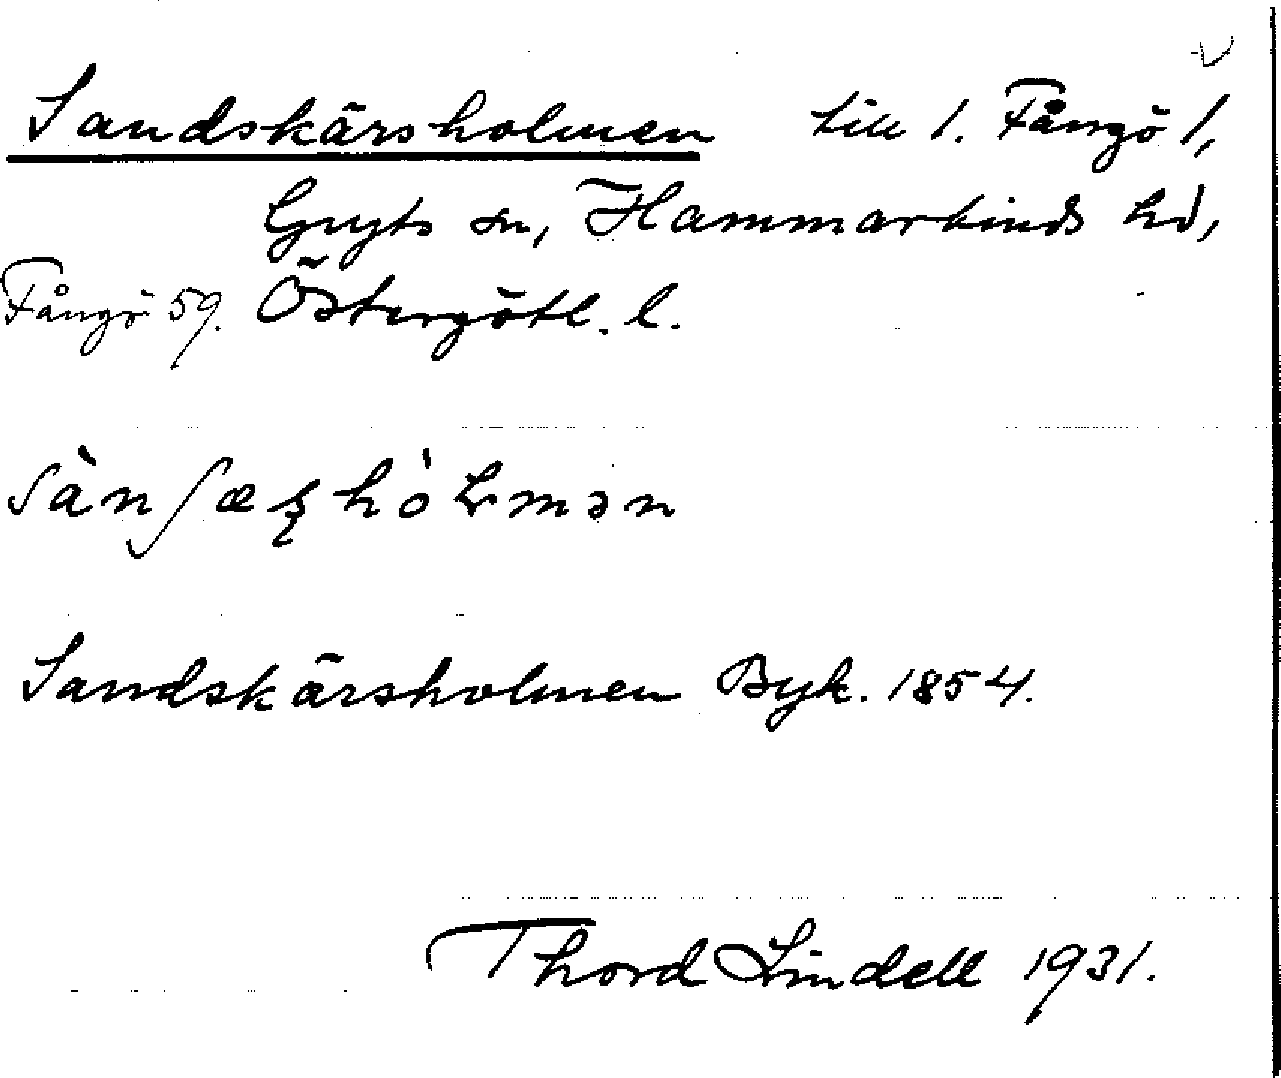 Sandskärsholmen till 1. Fångö 1,
Gryts sn, Hammarkinds hd,
Fångö 59. Östergötl. l.
sànʃæʂhòɫmən
Sandskärsholmen Byk. 1854.
Thord Lindell 1931.